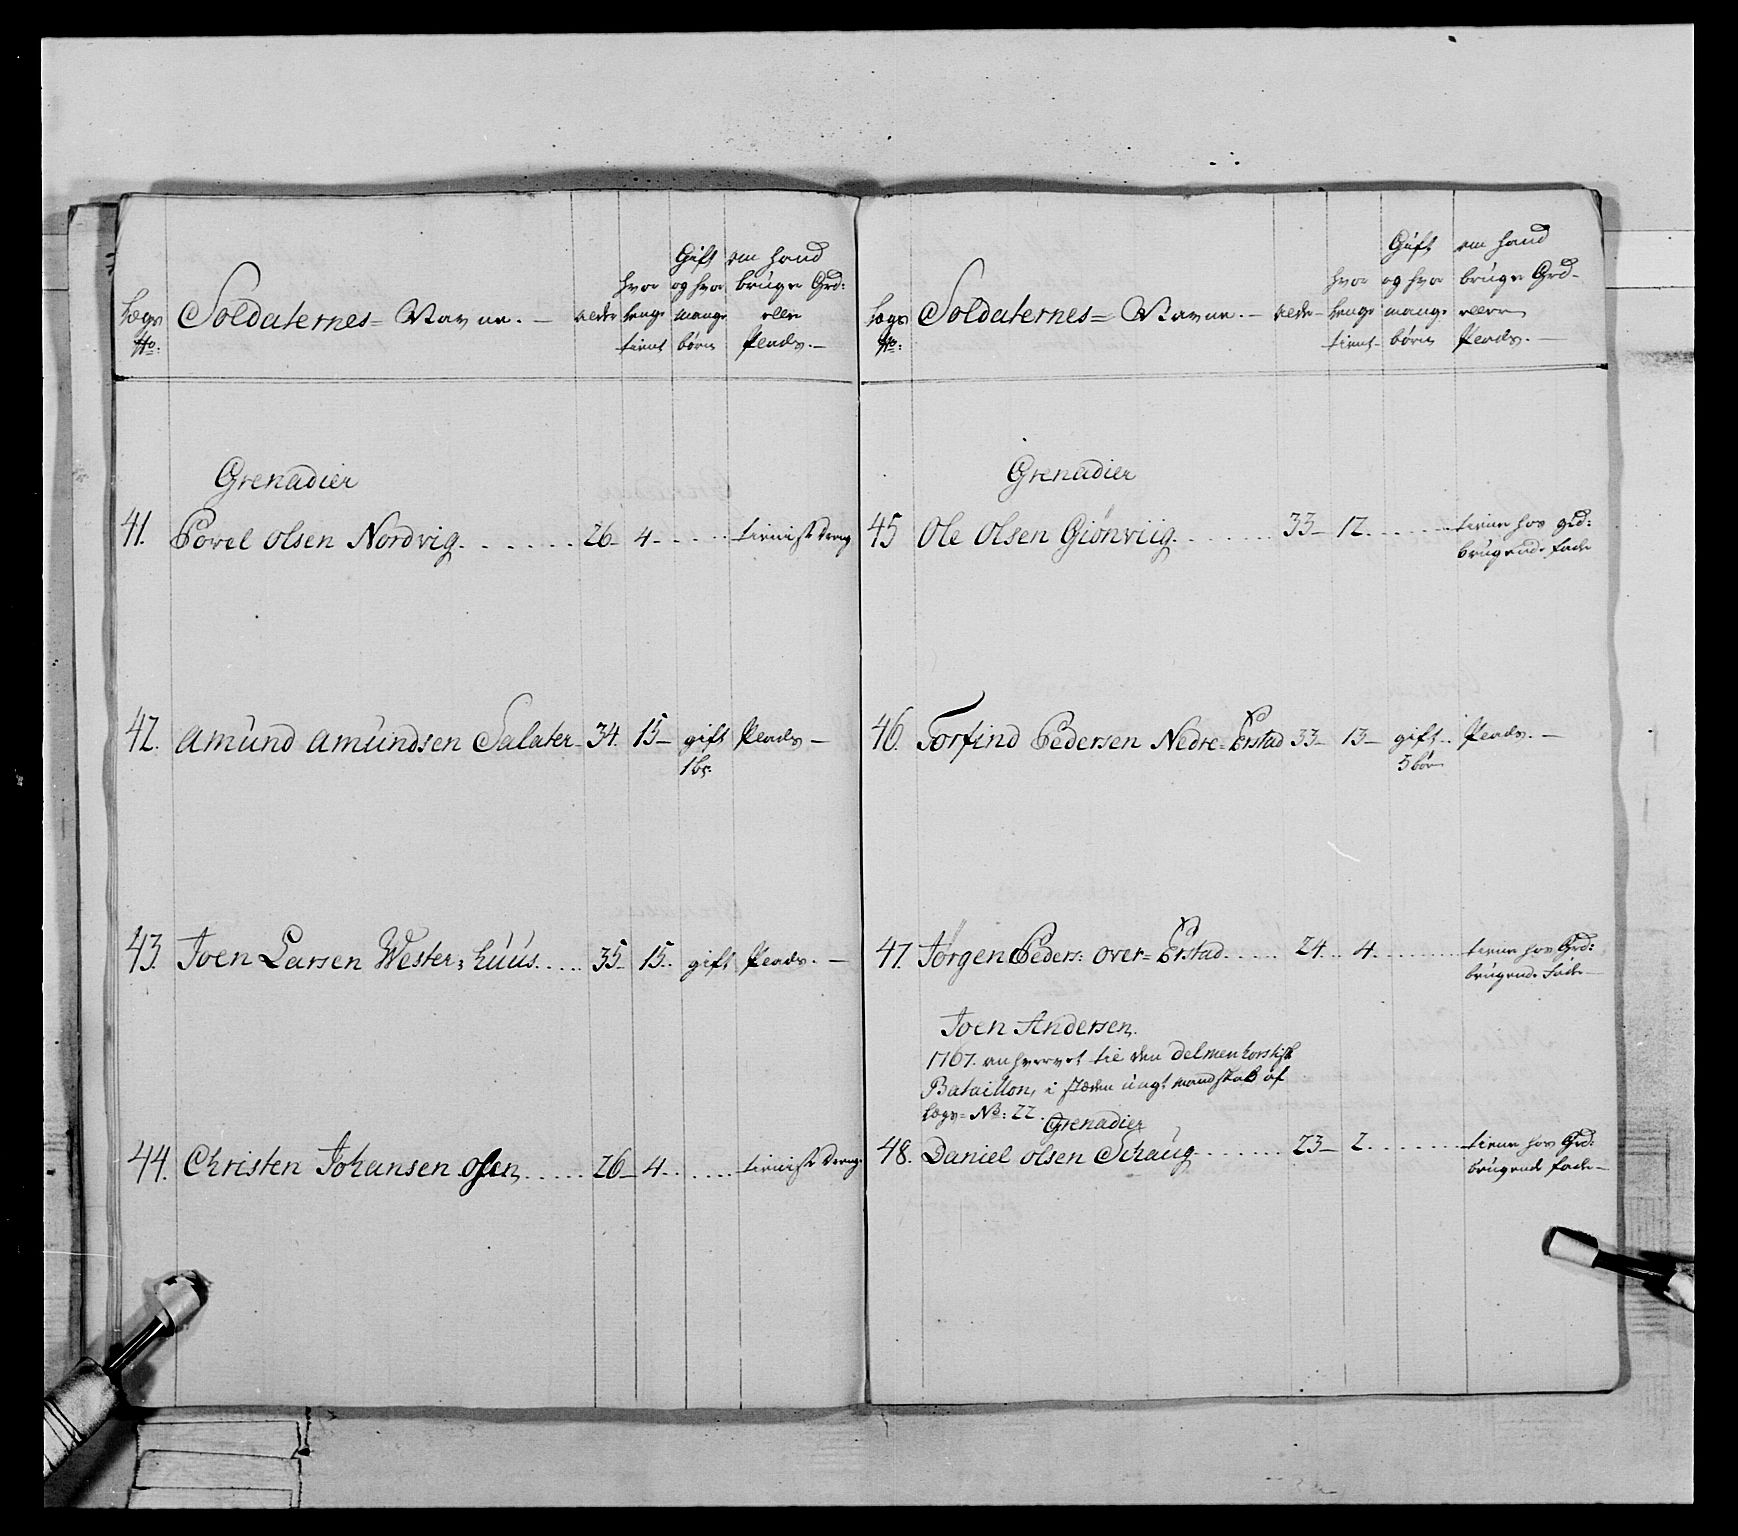 Lægs No: Soldaternes = Navne. — alder hvor lenge tient Gift og hvor mange børn om hand bruger Grd: eller Plads. —
Grenadier
41. Povel Olsen Nordvig. . . . . . . 26 – 4 – . . . . . tienist dreng
42. Amund Amundsen Salater – 34. 15 – gift Plads –
1 b:
43. Joen Larsen Wester = huus. . . . . 35 – 15. gift Plads. –
44. Christen Johansen Olsen . . . . . 26 – 4. . . . . . tienist dreng
Lægs No: Soldaternes = Navne. — alder hvor lenge tient Gift og hvor mange børn om hand bruger Grd. eller Plads. —
Grenadier
45 Ole Olsen Giönviig. . . . . . . 33 – 12. . . . . . tiener hos grd:
brugende fader
46. Torfind Pedersen Nedre = Erstad 33 – 13 – gift. Plads. –
5 børn
47. Jørgen Peders: Over = Erstad. . . . . 24. . 4. . . . . . . tiener hos Grd:
brugende Fader
Joen Andersen.
1767. anhvervet til den Delmenhorstiske
Bataillon, i stæden ungt mandskab af
Lægs = No: 22.
Grenadier
48. Daniel Olsen Schaug . . . . . . . 23 – 2. . . . . . . tiener hos Grd:
brugende fader –